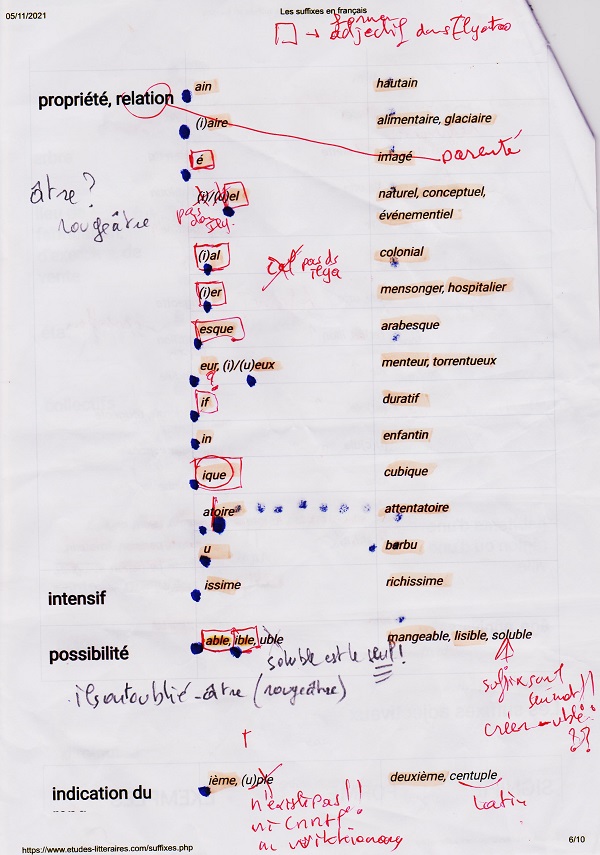 05/11/2021 Les suffixes en français
→ former
adjectif dans Ilyatoo
propriété, relation ain hautain
(i)aire alimentaire, glaciaire
é imagé parenté
âtre ?
rougeâtre
(i)/(u)el naturel, conceptuel,
événementiel
pas
(i)al colonial
pas ds
ilya
(i)er mensonger, hospitalier
esque arabesque
eur, (i)/(u)eux menteur, torrentueux
if duratif
in enfantin
ique cubique
atoire attentatoire
u barbu
intensif issime richissime
possibilité able, ible, uble mangeable, lisible, soluble
soluble est le seul !
ils ont oublié -âtre (rougeâtre)
suffixe sont
créer -uble
??
indication du ième, (u)ple deuxième, centuple
n'existe pas !!
ni Cnrtl
ni wiktionary
Latin
https://www.etudes-litteraires.com/suffixes.php 6/10